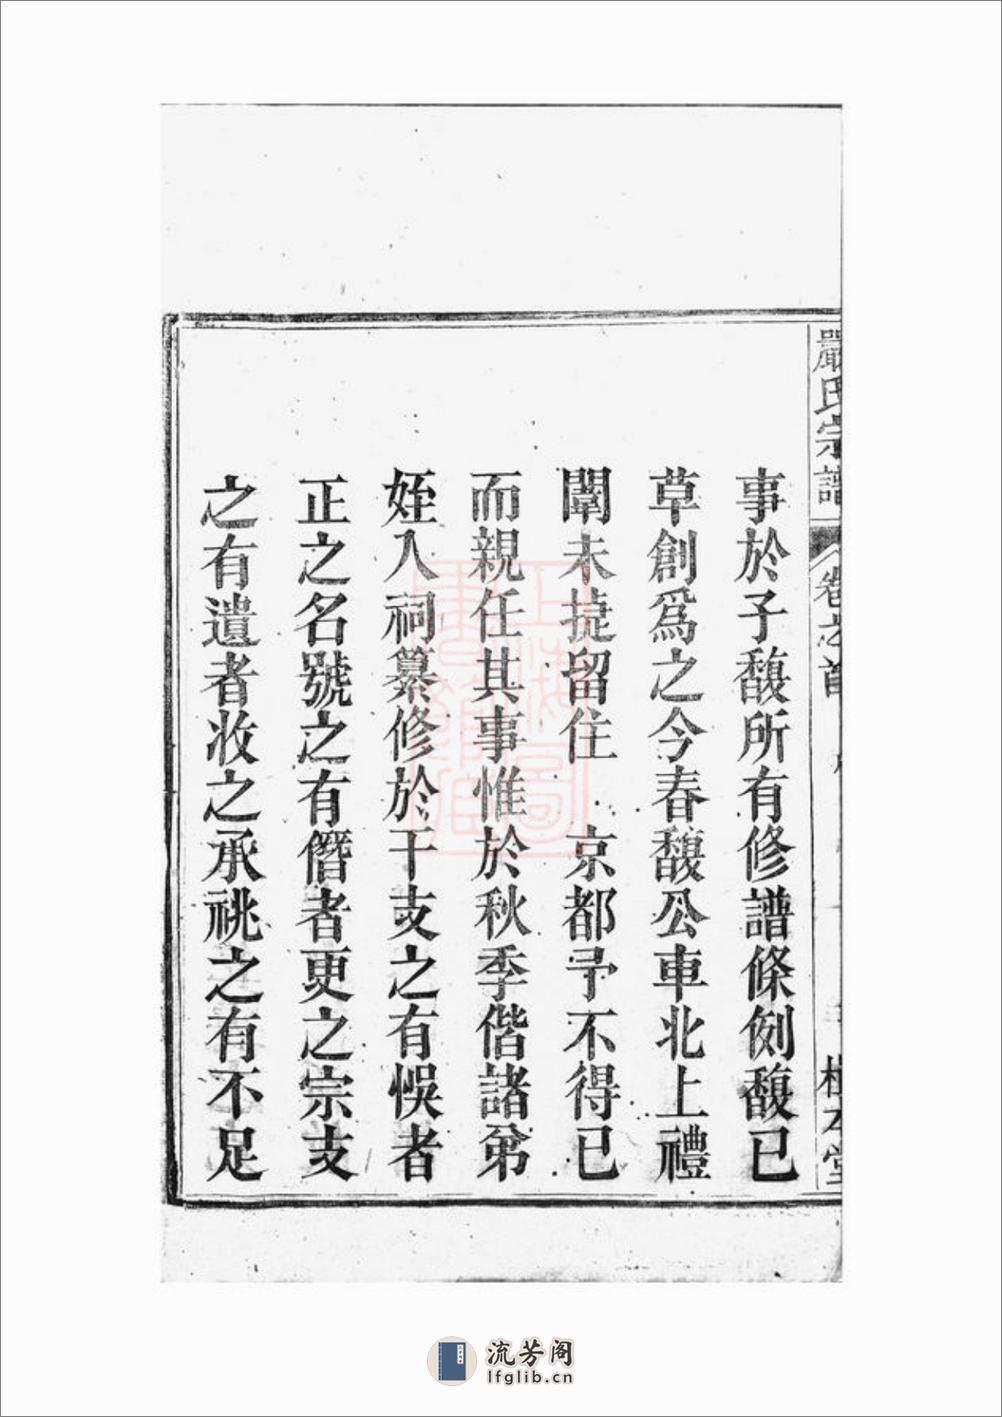 嚴氏宗譜 卷之首
事於子馥所有修譜條例馥已
草創爲之今春馥公車北上禮
闈未捷留住 京都予不得已
而親任其事惟於秋季偕諸弟
姪入祠纂修於干支之有悞者
正之名號之有僭者更之宗支
之有遺者收之承祧之有不足
上海圖書館藏
流芳阁
lfglib.cn